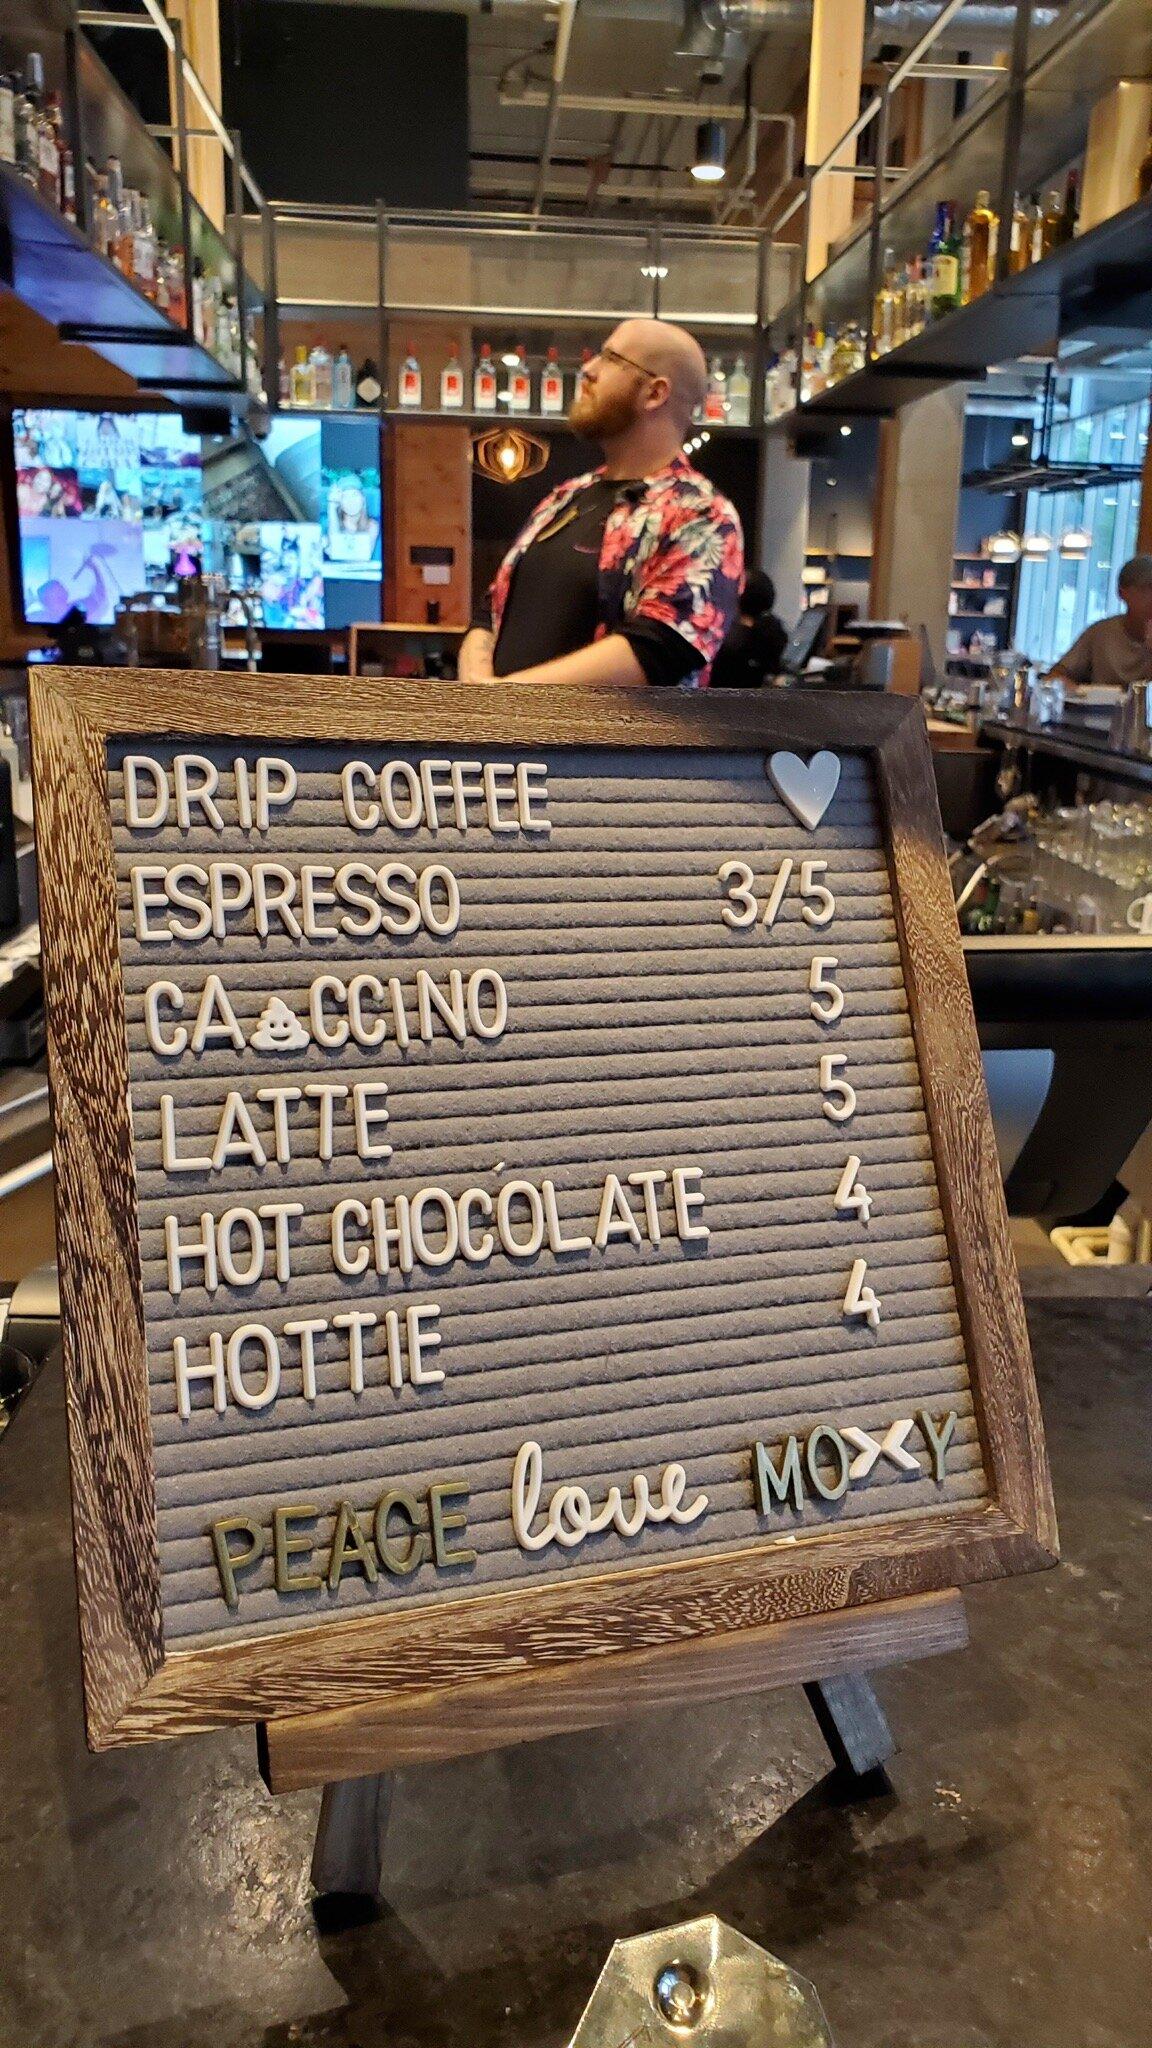 DRIP COFFEE 🤍
ESPRESSO 3/5
CA💩CCINO 5
LATTE 5
HOT CHOCOLATE 4
HOTTIE 4
PEACE love MOXY